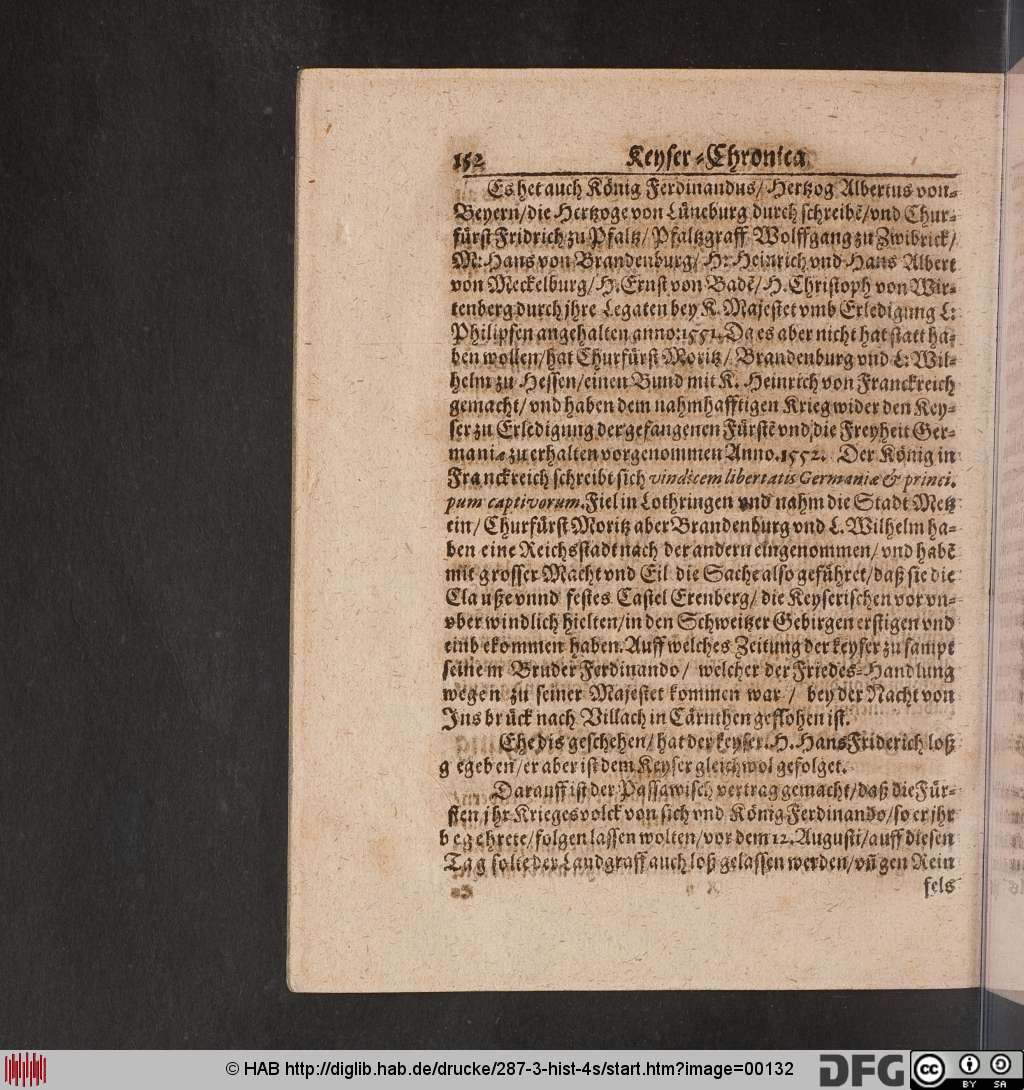 152 Keyser-Chronica
Es het auch König Ferdinandus/ Hertzog Albertus von-
Beyern/die Hertzoge von Lüneburg durch schreibẽ/vnd Chur-
fürst Fridrich zu Pfaltz/ Pfaltzgraff Wolffgang zu Zwibrick/
M: Hans von Brandenburg/ H: Heinrich vnd Hans Albert
von Meckelburg/ H. Ernst von Badẽ/ H. Christoph von Wir-
tenberg durch jhre Legaten bey K. Majestet vmb Erledigung L:
Philipsen angehalten anno: 1551. Da es aber nicht hat statt ha-
ben wollen/hat Churfürst Moritz/ Brandenburg vnd L: Wil-
helm zu Hessen/einen Bund mit K. Heinrich von Franckreich
gemacht/ vnd haben dem nahmhafftigen Krieg wider den Key-
ser zu Erledigung der gefangenen Fürstẽ vnd die Freyheit Ger-
maniæ zu erhalten vorgenommen Anno. 1552. Der König in
Franckreich schreibt sich vindicem libertatis Germaniæ & princi.
pum captivorum. Fiel in Lothringen vnd nahm die Stadt Metz
ein/ Churfürst Moritz aber Brandenburg vnd L. Wilhelm ha-
ben eine Reichsstadt nach der andern eingenommen/ vnd habẽ
mit grosser Macht vnd Eil die Sache also geführet/daß sie die
Clauße vnnd festes Castel Erenberg/ die Keyserischen vor vn-
vberwindlich hielten/in den Schweitzer Gebirgen erstigen vnd
einbekommen haben. Auff welches Zeitung der keyser zu sampt
seinem Bruder Ferdinando/ welcher der Friedes-Handlung
wegen zu seiner Majestet kommen war/ bey der Nacht von
Insbrück nach Villach in Cärnthen geflohen ist.
Ehe dis geschehen/ hat der keyser. H. Hans Friderich loß
gegeben/er aber ist dem Keyser gleichwol gefolget.
Darauff ist der Passawisch vertrag gemacht/daß die Für-
sten jhr Kriegesvolck von sich vnd König Ferdinando/so er jhr
begehrete/folgen lassen wolten/vor dem 12. Augusti/auff diesen
Tag solte der Landgraff auch loß gelassen werden/vñ gen Rein
fels
© HAB http://diglib.hab.de/drucke/287-3-hist-4s/start.htm?image=00132
DFG
cc
BY SA